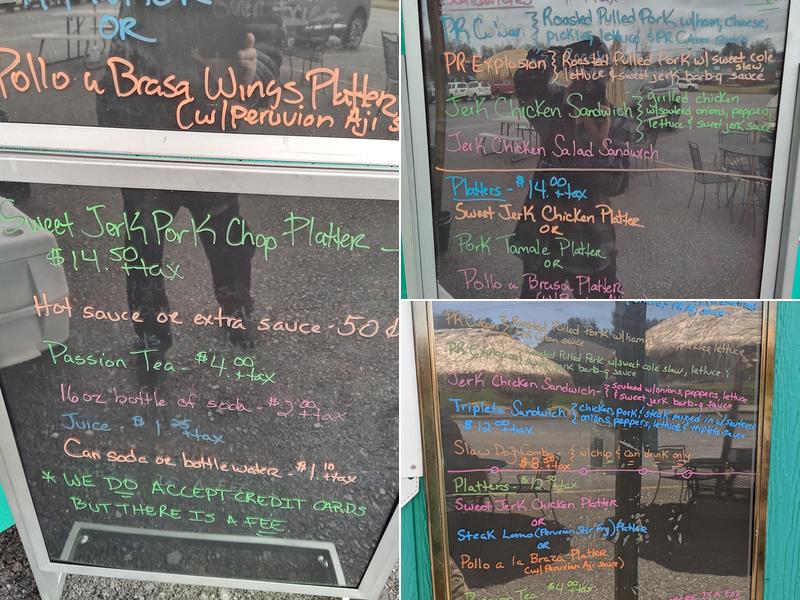 OR
Pollo a Brasa Wings Platter
(w/Peruvian Aji
Sweet Jerk Pork Chop Platter -
$14.50 + tax
Hot sauce or extra sauce - 50¢
Passion Tea - $4.00 + tax
16 oz bottle of soda - $2.00 + tax
Juice - $1.25 + tax
Can soda or bottle water - $1.10 + tax
* WE DO ACCEPT CREDIT CARDS
BUT THERE IS A FEE
Sandwiches
PR Cuban } Roasted Pulled Pork w/ham, cheese,
pickles, lettuce & PR Cuban sauce
PR Explosion } Roasted Pulled Pork w/ sweet cole slaw,
lettuce & sweet jerk barb-q sauce
Jerk Chicken Sandwich } grilled chicken
w/sauteed onions, peppers,
lettuce & sweet jerk sauce
Jerk Chicken Salad Sandwich
Platters - $14.00 + tax
Sweet Jerk Chicken Platter
OR
Pork Tamale Platter
OR
Pollo a Brasa Platter
PR Cuban } Roasted Pulled Pork w/ham, pickles, lettuce
PR Explosion } Roasted Pulled Pork w/sweet cole slaw, lettuce &
barb-q sauce
Jerk Chicken Sandwich - } sauteed w/onions, peppers, lettuce
& sweet jerk barb-q sauce
Tripleta Sandwich } chicken, pork & steak mixed in w/sauteed
$12.00 + tax onions, peppers, lettuce & tripleta sauce
Slaw Dog Combo - } w/chip & can drink only
$8.50 + tax
Platters - $12.50 + tax
Sweet Jerk Chicken Platter
OR
Steak Lomo (Peruvian Stir Fry) Platter
OR
Pollo a la Braza Platter
(w/Peruvian Aji sauce)
Passion Tea - $4.00 + tax